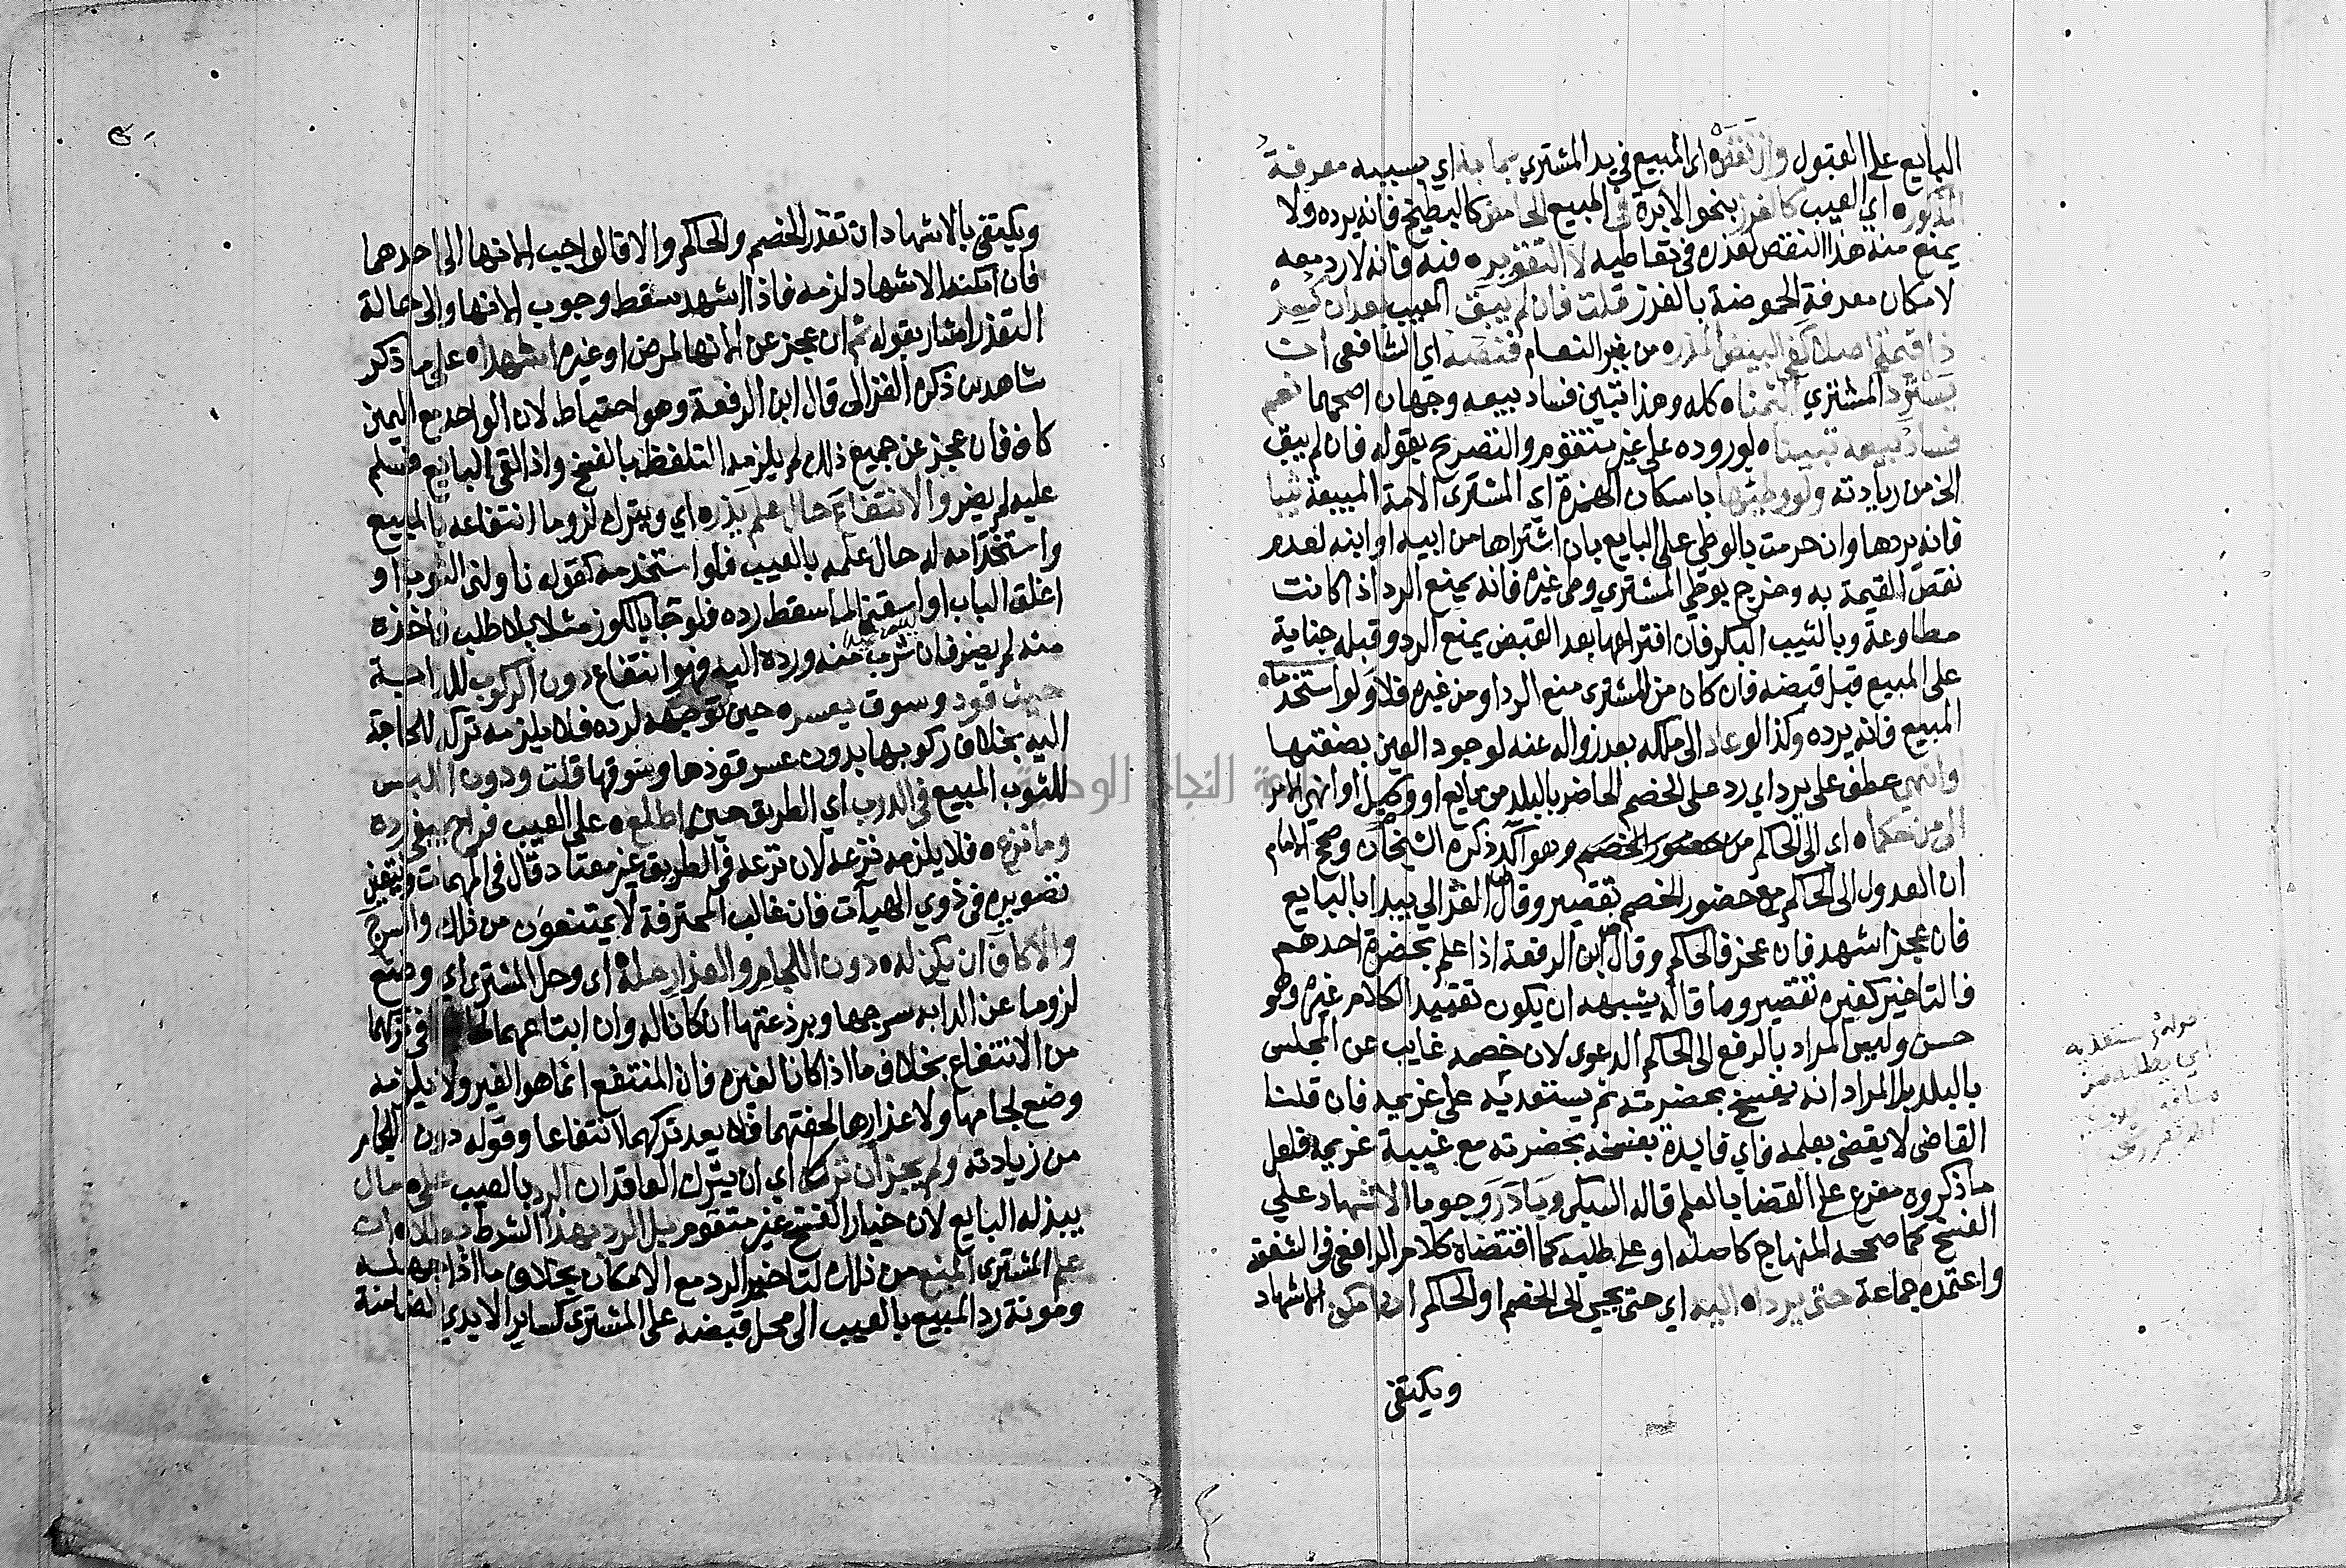 البايع على القبول وان نقص اى المبيع في يد المشتري بما به اي بسببه معرفة
المذكور اي العيب كالغرز بنحو الابرة في المبيع الحامض كالبطيخ فانه يرده ولا
يمنع منه هذا النقص لعذره في تعاطيه لا التقوير فيه فانه لا رد معه
لامكان معرفة الحموضة بالغرز قلت فان لم يبق المعيب بعد ان كسر
ذا قيمة اصلا كفي البيض المذر من غير النعام فنصه اي الشافعى ان
يسترد المشتري الثمنا كله وهذا تبين فساد بيعه وجهان اصحهما نعم
فساد بيعه تبينا لوروده على غير متقوم والتصريح بقوله فان لم يبق
الخ من زيادته ولو وطئها باسكان الهمزة اي المشترى الامة المبيعة ثيبا
فانه يردها وان حرمت بالوطي على البايع بان اشتراها من ابيه او ابنه لعدم
نقص القيمة به وخرج بوطي المشتري وطى غيره فانه يمنع الرد اذا كانت
مطاوعة وبالثيب البكر فان افتراعها بعد القبض يمنع الرد وقبله جناية
على المبيع قبل قبضه فان كان من المشترى منع الرد او من غيره فلا ولو استخدما
المبيع فانه يرده وكذا لو عاد الى ملكه بعد زواله عنه لوجود العين بصفتها
او انهى عطف على يرد اي رد على الخصم الحاضر بالبلد من بايع او وكيل او انهى الامر
الى من حكما اي الى الحاكم من حضور الخصم وهو آكد ذكره الشيخان وصحح الامام
ان العدول الى الحاكم مع حضور الخصم تقصير وقال الغزالي يبدا بالبايع
فان عجز اشهد فان عجز فالحاكم وقال ابن الرفعة اذا علم بحضرة احدهم
فالتاخير لغيره تقصير وما قاله يشبه ان يكون تقييد الكلام غيره وهو
حسن وليس المراد بالرفع الى الحاكم الدعوى لان خصمه غايب عن المجلس
بالبلد بل المراد انه يفسخ بحضرته ثم يستعديه على غريمه فان قلنا
القاضى لا يقضى بعلمه فاي فايدة بفسخه بحضرته مع غيبة غريمه فلعل
ما ذكروه مفرع على القضا بالعلم قاله السبكي وبادر وجوبا الاشهاد على
الفسخ كما صححه المنهاج كاصله او على طلبه كما اقتضاه كلام الرافعي في الشفعة
واعتمده جماعة حتى يردا اليه اي حتى يجي الى الخصم او الحاكم ان امكن الاشهاد
ويكتفى
قوله ثم يستعديه
اي يطلبه من
ويكتفى بالاشهاد ان تعذر الخصم والحاكم والا قالواجب الانها الى احدهما
فان امكنه الاشهاد لزمه فاذا اشهد سقط وجوب الانها والى حالة
التعذر اشار بقوله ثم ان عجز عن الانها لمرض او غيره اشهدا على ما ذكر
شاهدين ذكره الغزالى قال ابن الرفعة وهو احتياط لان الواحد مع اليمين
كاف فان عجز عن جميع ذلك لم يلزمه التلفظ بالفسخ واذا لقى البايع فسلم
عليه لم يضر والانتفاع حال علم يذر اي ويترك لزوما انتفاعه بالمبيع
واستخدامه له حال علمه بالعيب فلو استخدمه كقوله ناولنى الثوب او
اغلق الباب او اسقنى الما سقط رده فلو جا بالكوز مثلا بلا طلب فاخذه
منه لم يضر فان شرب منه ورده اليه فهو انتفاع دون الركوب للدابة
حيث قود وسوق يعسر حين توجه لرده فلا يلزمه تركه للحاجة
اليه بخلاف ركوبها بدون عسر قودها وسوقها قلت ودون اللبس
للثوب المبيع في الدرب اي الطريق حين اطلع على العيب فراح يبغى رده
وما نزع فلا يلزمه نزعه لان نزعه في الطريق غير معتاد قال في المهمات ويتعين
تصويره في ذوي الهيآت فان غالب المحترفة لا يمتنعون من ذلك والسرج
والاكاف ان يكن له دون اللجام والعذار حله اى وحل المشترى اي وضع
لزوما عن الدابه سرجها وبرذعتها ان كانا له وان ابتاعهما في تركهما
من الانتفاع بخلاف ما اذا كانا لغيره فان المنتفع انما هو الغير ولا يلزمه
وضع لجامها ولا عذارها لخفتهما فلا يعد تركهما انتفاعا وقوله دون اللجام
من زيادته ولم يجز ان ترك اي ان يترك العاقدان الرد بالعيب على مال
يبذله البايع لان خيار الفسخ غير متقوم بل الرد بهذا الشرط ان
علم المشترى المنع من ذلك لتاخير الرد مع الامكان بخلاف ما اذا جهله
ومونة رد المبيع بالعيب الى محل قبضه على المشترى كساير الايدي الضامنة